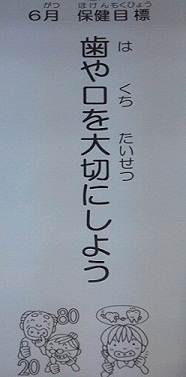 がつ ほけんもくひょう
6月 保健目標
は くち たいせつ
歯や口を大切にしよう
80
20